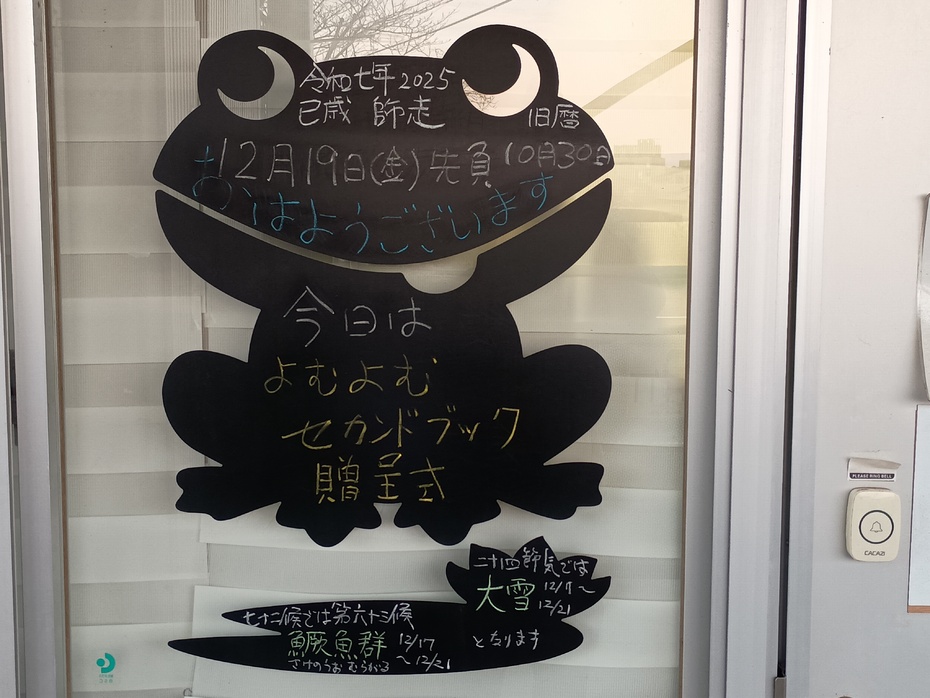 令和七年2025
巳歳 師走
旧暦
12月19日(金)先負 10月30日
おはようございます
今日は
よむよむ
セカンドブック
贈呈式
二十四節気では
大雪 12/7~
12/21
七十二候では第六十三候
鱖魚群 12/17
~12/21
さけのうおむらがる
となります
PLEASE RING BELL
CACAZI